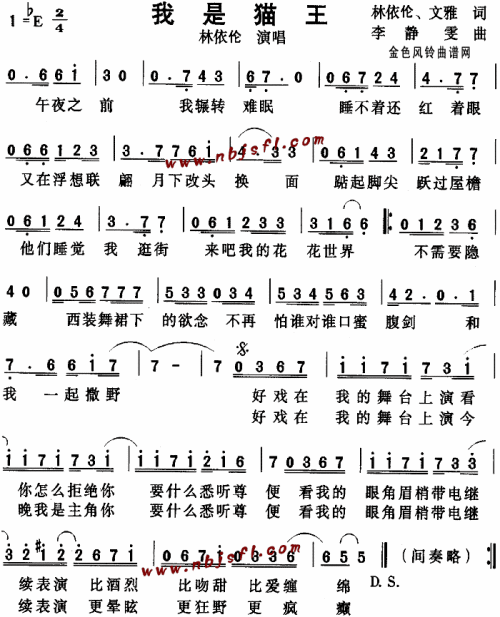 我是猫王
1=♭E 2/4
林依伦 演唱
林依伦、文雅 词
李静雯 曲
金色风铃曲谱网
0·661 30 0·743 67·0 06724 4·77
午夜之前 我辗转难眠 睡不着还红着眼
066123 3·7761 4·33 06143 2177
又在浮想联翩 月下改头换面 踮起脚尖 跃过屋檐
www.nbjsfl.com
06124 3·77 06123 3166 :01236
他们睡觉 我逛街 来吧我的花花世界 不需要隐
40 056777 533034 534563 42·0·1
藏 西装舞裙下的欲念 不再怕谁对谁口蜜腹剑 和
7·6617 7- 70367 1171 731
我一起撒野 好戏在我的舞台上演看
好戏在我的舞台上演今
1171731 1171216 70367 1171731
你怎么拒绝你 要什么悉听尊便 看我的眼角眉梢带电继
晚我是主角你 要什么悉听尊便 看我的眼角眉梢带电继
32#12 2671 067 0·33 655 :(间奏略):
续表演 比酒烈 比吻甜 比爱缠绵 D.S.
www.nbjsfl.com
续表演 更晕眩 更狂野 更疯癫